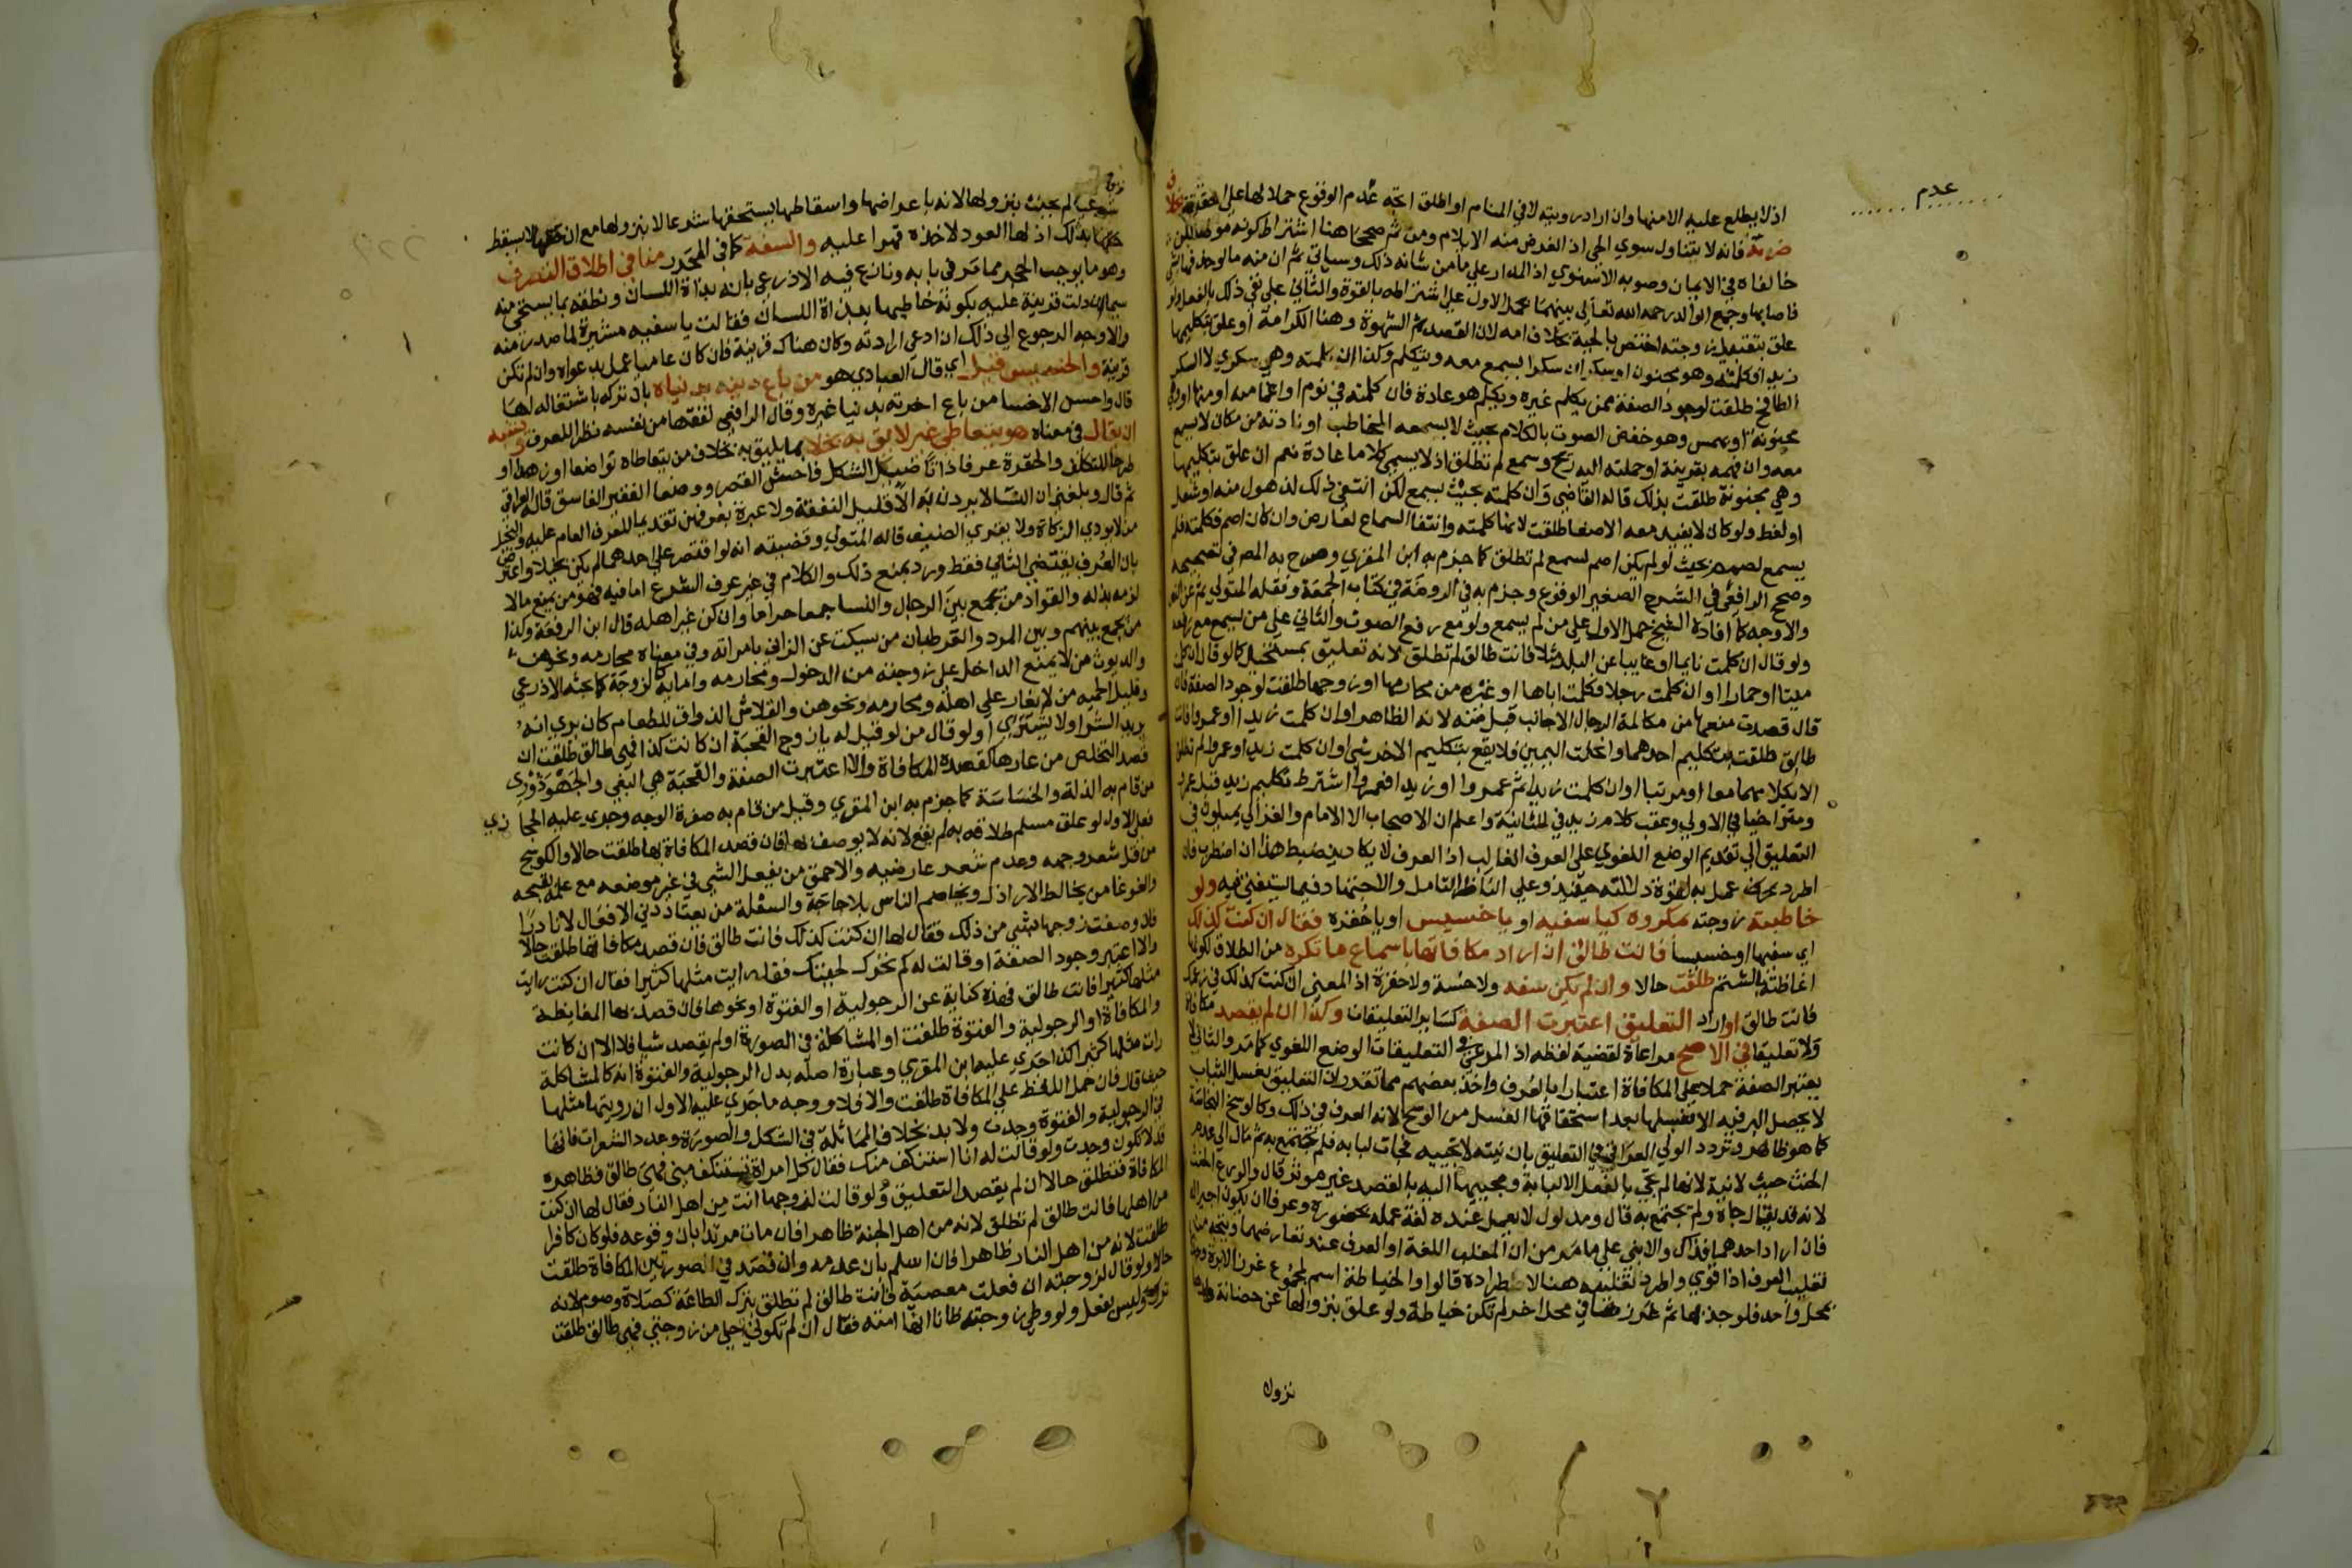 عدم
اذ لا يطلع عليه الا منها وان اراد رويته لا في المنام او اطلق اتجه عدم الوقوع حملا لها على الحقيقة بخلاف
ضربه فانه لا يتناول سوي الحي اذ الغرض منه الايلام ومن ثم صححا هنا اشتراط كونه مولما لكن
خالفاه في الايمان وصوبه الاسنوي اذ المدار علي ما من شانه ذلك وسياتي ثم ان منه ما لو حذفها بشي
فاصابها وجمع الوالد رحمه الله تعالي بينهما بحمل الاول علي اشتراطه بالقوة والثاني علي نفي ذلك بالفعل ولو
علق بتقبيل زوجته اختص بالحية بخلاف امه لان القصد ثم الشهوة وهنا الكرامة او علق بتكليمها
زيدا فكلمته وهو مجنون او سكران سكرا يسمع معه ويتكلم وكذا ان كلمته وهي سكري لا السكر
الطافح طلقت لوجود الصفة ممن يكلم غيره ويكلم هو عادة فان كلمته في نوم او اغما منه او منها او وهي
مجنونة او بهمس وهو خفض الصوت بالكلام بحيث لا يسمعه المخاطب او نادته من مكان لا يسمع
معه وان فهمه بقرينة او حملته اليه ريح وسمع لم تطلق اذ لا يسمي كلاما عادة نعم ان علق بتكليمها
وهي مجنونة طلقت بذلك قاله القاضي وان كلمته بحيث يسمع لكن انتفي ذلك لذهول منه او شغل
او لغط ولو كان لا يفيد معه الاصغا طلقت لانها كلمته وانتفا السماع لعارض وان كان اصم فكلمته فلم
يسمع لصمم بحيث لو لم يكن اصم لسمع لم تطلق كما جزم به ابن المقري وصرح به المص في تصحيحه
وصحح الرافعي في الشرح الصغير الوقوع وجزم به في الروضة في كتابه الجمعة ونقله المتولي ثم عن النص
والاوجه كما افاده الشيخ حمل الاول علي من لم يسمع ولو مع رفع الصوت والثاني علي من يسمع مع رفعه
ولو قال ان كلمت نايما او غايبا عن البلد مثلا فانت طالق لم تطلق لانه تعليق بمستحيل كما لو قال ان كلمت
ميتا او حمارا او ان كلمت رجلا فكلمت اباها او غيره من محارمها او زوجها طلقت لوجود الصفة فان
قال قصدت منعها من مكالمة الرجال الاجانب قبل منه لانه الظاهر او ان كلمت زيدا او عمروا فانت
طالق طلقت بتكليم احدهما وانحلت اليمين فلا يقع بتكليم الاخر شي او ان كلمت زيدا وعمرا لم تطلق
الا بكلامهما معا او مرتبا او ان كلمت زيدا ثم عمروا او زيدا فعمروا اشترط تكليم زيد قبل عمرو
ومتراخيا في الاولي وعقب كلام زيد في الثانية واعلم ان الاصحاب الا الامام والغزالي يميلون في
التعليق الي تقديم الوضع اللغوي علي العرف الغالب اذ العرف لا يكاد ينضبط هذا ان اضطرب فان
اطرد عمل به لقوة دلالته حينئذ وعلي الناظر التامل والاجتهاد فيما يستفتي فيه ولو
خاطبته زوجته بمكروه كيا سفيه او يا خسيس او يا حفره فقال ان كنت كذلك
اي سفيها او خسيسا فانت طالق ان اراد مكافاتها باسماع ما تكره من الطلاق لكونها
اغاظته بالشتم طلقت حالا وان لم يكن سفه ولا خسة ولا حفرة اذ المعني ان كنت كذلك في زعمك
فانت طالق او اراد التعليق اعتبرت الصفة كساير التعليقات وكذا ان لم يقصد مكافاة
ولا تعليقا في الاصح مراعاة لقضية لفظه اذ المرعي في التعليقات الوضع اللغوي كما مر والثاني لا
يعتبر الصفة حملا علي المكافاة اعتبارا بالعرف واخذ بعضهم مما تقرر ان التعليق بغسل الثياب
لا يحصل البر فيه الا بغسلها بعد استحقاقها الغسل من الوسخ لانه العرف في ذلك وكالوسخ النجاسة
كما هو ظاهر وتردد الولي العراقي في التعليق بان بنته لا تجيبه فجات لبابه فلم تجتمع به ثم مال الي عدم
الحنث حيث لا نية لانها لم تجي بالفعل الا لبابه ومجييها اليه بالقصد غير موثر قال والورع الحنث
لانه قد يقال جاه ولم تجتمع به قال ومدلول لا تعمل عنده لغة عمله بحضوره وعرفا ان يكون اجيرا له
فان اراد احدهما فذاك والا بني علي ما مر من ان المغلب اللغة او العرف عند تعارضهما ويتجه هنا
تغليب العرف اذا قوي واطرد تغليبه هنا لاطراده قالوا والخياطة اسم لمجموع غرز الابرة وجذبها
بمحل واحد فلو جذبها ثم غرزها في محل اخر لم تكن خياطة ولو علق بنزولها عن حضانة ولدها
نزوله
شرعي لم يحنث بنزولها لانه باعراضها واسقاطها يستحقها شرعا لا بنزولها مع ان حقها لا يسقط
حقها بذلك اذ لها العود لاخذه قهرا عليه والسفه كما في المحرر منافي اطلاق التصرف
وهو ما يوجب الحجر مما مر في بابه ونازع فيه الاذرعي بانه بذاة اللسان ونطقه بما يستحي منه
سيما ان دلت قرينة عليه بكونه خاطبها ببذاة اللسان فقالت يا سفيه مشيرة لما صدر منه
والاوجه الرجوع الي ذلك ان ادعي ارادته وكان هناك قرينة فان كان عاميا عمل بدعواه وان لم تكن
قرينة والخسيس قيل اي قال العبادي هو من باع دينه بدنياه بان تركه باشتغاله لها
قال واخس الاخسا من باع اخرته بدنيا غيره وقال الرافعي تفقها من نفسه نظرا للعرف ويشبه
ان يقال في معناه هو يتعاطي غير لايق به بخلا بما يليق به بخلاف من يتعاطاه تواضعا او زهدا او
طرحا للتكلف والحفرة عرفا ذاتا ضئيل الشكل فاحش القصر ووصفها الفقير الفاسق قاله العراقي
ثم قال وبلغني ان النسا لا يردن به الا قليل النفقة ولا عبرة بعرفهن تقديما للعرف العام عليه والبخيل
من لا يودي الزكاة ولا يقري الضيف قاله المتولي وقضيته انه لو اقتصر علي احدهما لم يكن بخيلا واعترض
بان العرف يقتضي الثاني فقط ورد بمنع ذلك والكلام في غير عرف الشرع اما فيه فهو من يمنع مالا
لزمه بذله والقواد من يجمع بين الرجال والنسا جمعا حراما وان كن غير اهله قال ابن الرفعة وكذا
من يجمع بينهم وبين المرد والقرطبان من سكت عن الزاني بامراته وفي معناه محارمه ونحوهن
والديوث من لا يمنع الداخل علي زوجته من الدخول ومحارمه واماؤه كالزوجة كما بحثه الاذرعي
وقليل الحمية من لا يغار علي اهله ومحارمه ونحوهن والقلاش الذواق للطعام كان يري انه
يريد الشرا ولا يشتري ولو قال من لو قيل له يا زوج القحبة ان كانت كذا فهي طالق طلقت ان
قصد التخلص من عارها كقصده المكافاة والا اعتبرت الصفة والقحبة هي البغي والجهودوري
من قام به الذلة والخساسة كما جزم به ابن المقري وقيل من قام به صفرة الوجه وجري عليه الحجازي
فعلي الاول لو علق مسلم طلاقه به لم يقع لانه لا يوصف بها فان قصد المكافاة بها طلقت حالا والكوسج
من قل شعر وجهه وعدم شعر عارضيه والاحمق من يفعل الشي في غير موضعه مع علمه بقبحه
والغوغا من يخالط الاراذل ويخاصم الناس بلا حاجة والسفلة من يعتاد دني الافعال لا نادرا
فلو وصفت زوجها بشي من ذلك فقال لها ان كنت كذلك فانت طالق فان قصد مكافاتها طلقت حالا
والا اعتبر وجود الصفة او قالت له كم تحرك لحيتك فقد رايت مثلها كثيرا فقال ان كنت رايت
مثلها كثيرا فانت طالق فهذه كناية عن الرجولية او الفتوة او نحوها فان قصد بها المغايظة
والمكافاة او الرجولية والفتوة طلقت او المشاكلة في الصورة او لم يقصد شيا فلا الا ان كانت
رات مثلها كثيرا كذا جري عليها ابن المقري وعبارة اصله بدل الرجولية والفتوة انه كالمشاكلة
حيث قال فان حمل اللفظ علي المكافاة طلقت والا فلا ووجه ما جري عليه الاول ان رويتها مثلها
في الرجولية والفتوة وجدت ولا بد بخلاف المماثلة في الشكل والصورة وعدد الشعرات فانها
قد لا تكون وجدت ولو قالت له انا استنكف منك فقال كل امراة تستنكف مني فهي طالق فظاهره
المكافاة فتطلق حالا ان لم يقصد التعليق ولو قالت لزوجها انت من اهل النار فقال لها ان كنت
من اهلها فانت طالق لم تطلق لانه من اهل الجنة ظاهرا فان مات مرتدا بان وقوعه فلو كان كافرا
طلقت لانه من اهل النار ظاهرا فان اسلم بان عدمه وان قصد في الصورتين المكافاة طلقت
حالا ولو قال لزوجته ان فعلت معصية فانت طالق لم تطلق بترك الطاعة كصلاة وصوم لانه
ترك وليس بفعل ولو وطي زوجته ظانا انها امته فقال ان لم تكوني احلي من زوجتي فهي طالق طلقت